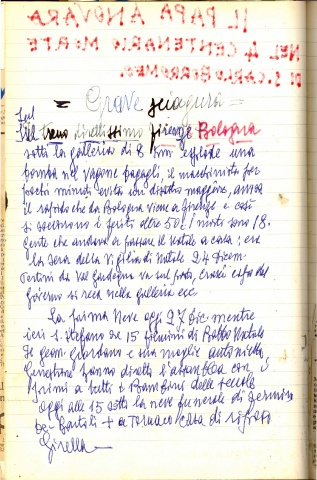 IL PAPA A NOVARA
NEL 4 CENTENARIO MORTE
DI S. CARLO BORROMEO.
= Grave sciagura =
Sul
treno direttissimo Firenze Bologna
sotto la galleria di 8 km esplode una
bomba nel vagone bagagli, il macchinista per
pochi minuti evita un disastro maggiore, avvisa
il rapido che da Bologna viene a Firenze e così
si salvano i feriti oltre 50 / i morti sono 18.
Gente che andava a passare il Natale a casa; era
la sera della Vigilia di Natale 24 Dicem.
Pertini da Val Gardena va sul posto, Craxi capo del
governo si reca nella galleria ecc
La prima Neve oggi 27 dic mentre
ieri S. Stefano le 15
Il geom. Giordano e sua moglie
hanno diretto
a tutti i Bambini delle scuole
Oggi alle 15 sotto la neve funerale di
Bartoli + a Tornaco casa di riposo